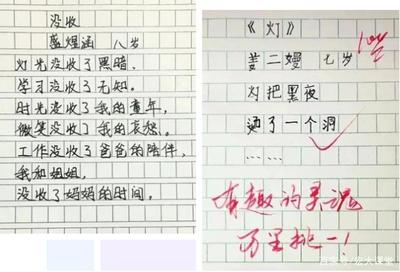 没收
蓝煜涵 八岁
灯光没收了黑暗，
学习没收了无知。
时光没收了我的童年，
微笑没收了我的哀愁。
工作没收了爸爸的陪伴，
我和姐姐，
没收了妈妈的时间。
《灯》
姜二嫚 七岁
灯把黑夜
烫了一个洞
……
有趣的灵魂
万里挑一！